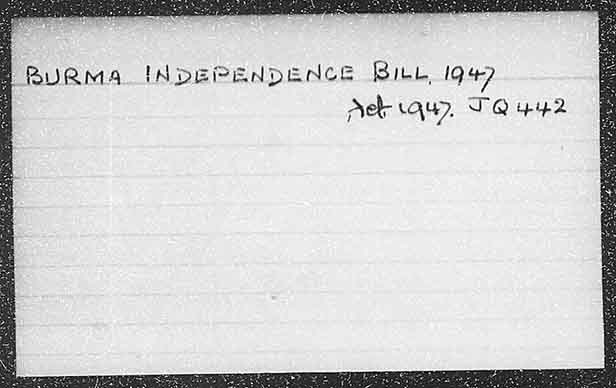 BURMA INDEPENDENCE BILL, 1947
Act 1947. JQ442